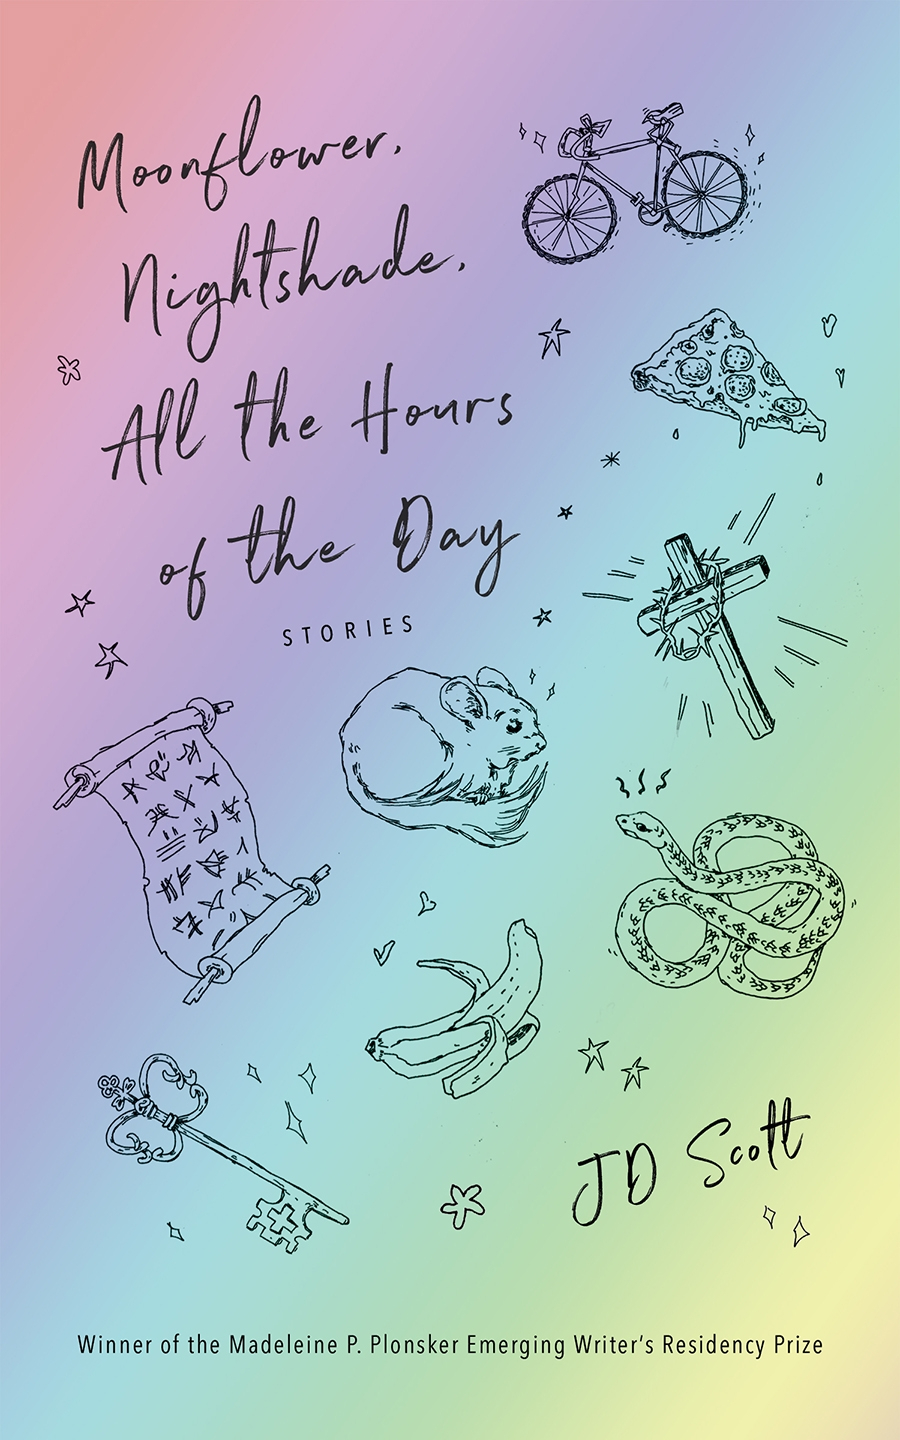 Moonflower,
Nightshade,
All the Hours
of the Day
STORIES
JD Scott
Winner of the Madeleine P. Plonsker Emerging Writer's Residency Prize